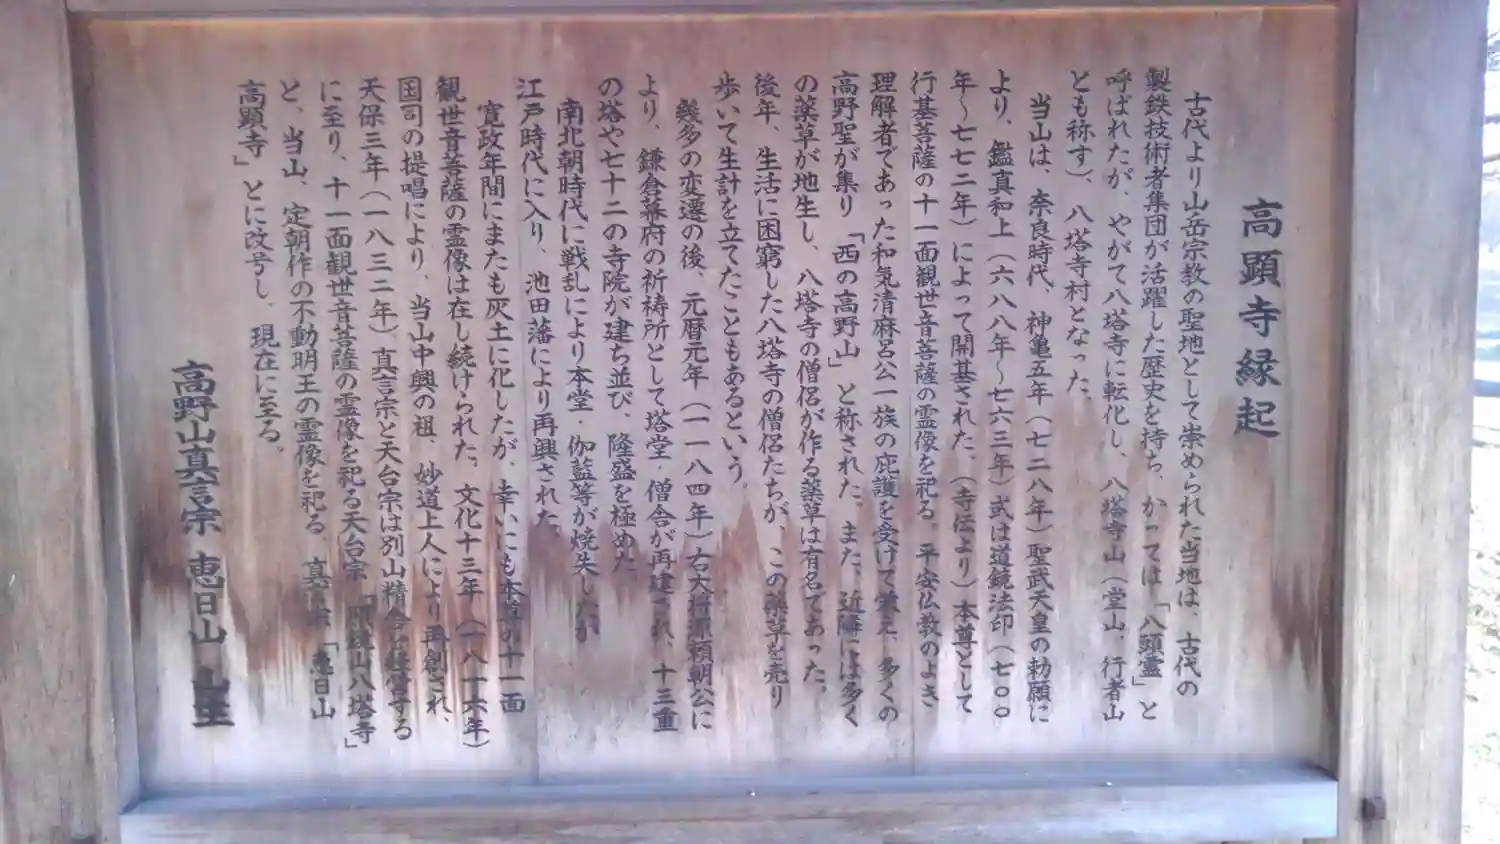 高顕寺縁起
古代より山岳宗教の聖地として崇められた当地は、古代の
製鉄技術者集団が活躍した歴史を持ち、かつては「八頭霊」と
呼ばれたが、やがて八塔寺に転化し、八塔寺山（堂山、行者山
とも称す）、八塔寺村となった。
当山は、奈良時代、神亀五年（七二八年）聖武天皇の勅願に
より、鑑真和上（六八八年～七六三年）或は道鏡法印（七〇〇
年～七七二年）によって開基された。（寺伝より）本尊として
行基菩薩の十一面観世音菩薩の霊像を祀る。平安仏教のよき
理解者であった和気清麻呂公一族の庇護を受けて栄え、多くの
高野聖が集り「西の高野山」と称された。また、近隣には多く
の薬草が地生し、八塔寺の僧侶が作る薬草は有名であった。
後年、生活に困窮した八塔寺の僧侶たちが、この薬草を売り
歩いて生計を立てたこともあるという。
幾多の変遷の後、元暦元年（一一八四年）右大将源頼朝公に
より、鎌倉幕府の祈祷所として塔堂・僧舎が再建され、十三重
の塔や七十二の寺院が建ち並び、隆盛を極めた。
南北朝時代に戦乱により本堂・伽藍等が焼失したが
江戸時代に入り、池田藩により再興された。
寛政年間にまたも灰土に化したが、幸いにも本尊の十一面
観世音菩薩の霊像は在し続けられた。文化十三年（一八一六年）
国司の提唱により、当山中興の祖、妙道上人により再創され、
天保三年（一八三二年）、真言宗と天台宗は別山精舎を経営する
に至り、十一面観世音菩薩の霊像を祀る天台宗「照鏡山八塔寺」
と、当山、定朝作の不動明王の霊像を祀る、真言宗「恵日山
高顕寺」とに改号し、現在に至る。
高野山真言宗 恵日山 山主